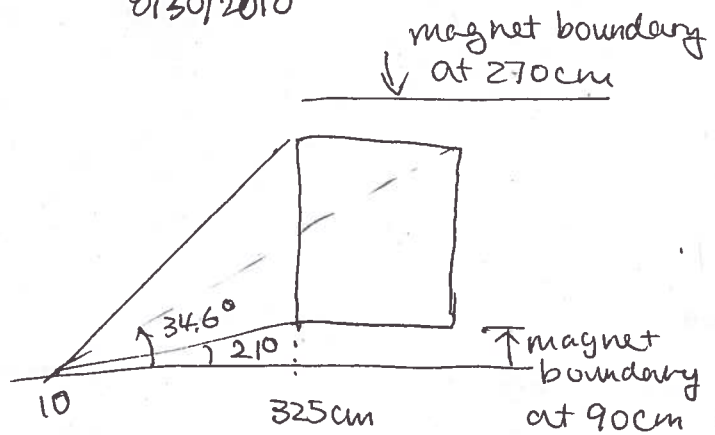 8/30/2010
magnet boundary
↓ at 270cm
34.6°
21°
↑magnet
boundary
at 90cm
10
325cm